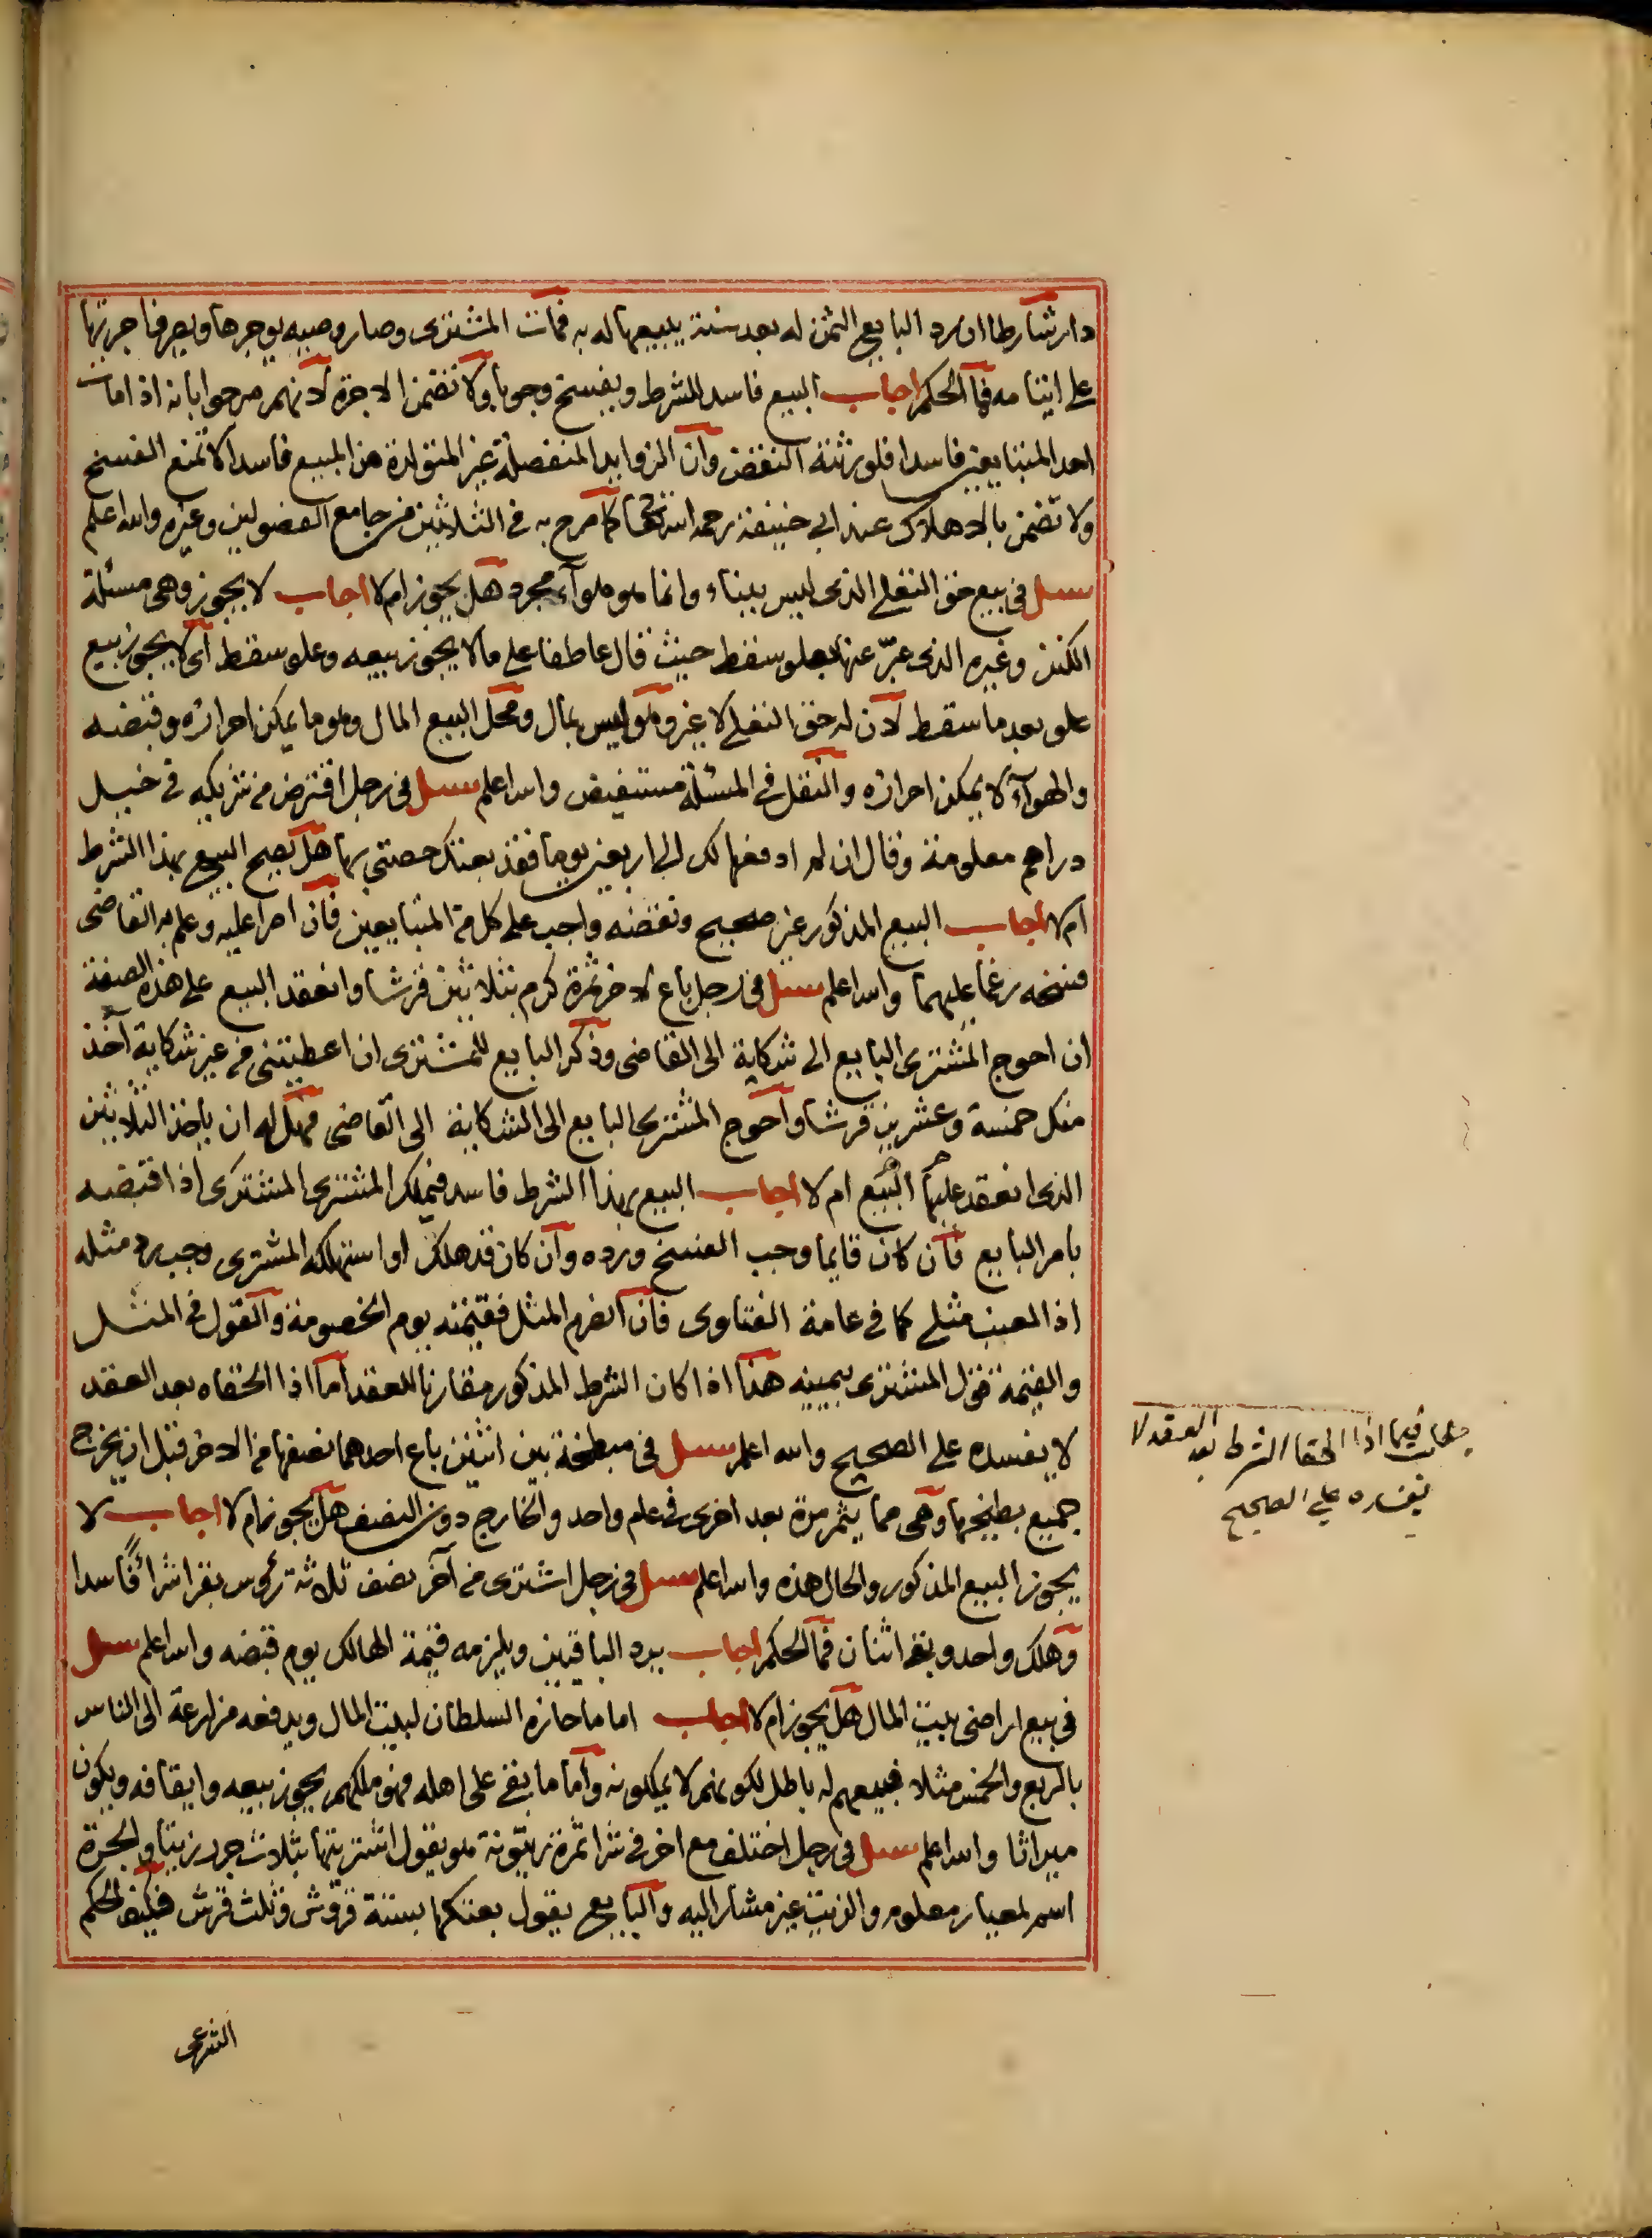 دار شارطا ان رد البايع الثمن له بعد سنة يبيعها له به فمات المشترى وصار وصيه يوجرها ويصرف اجرتها
على ايتامه فما الحكم اجاب البيع فاسد للشرط ويفسخ وجوبا ولا تضمن الاجرة لانهم صرحوا بانه اذا مات
احد المتبايعين فاسدا فلورثته النقض وان الزوايد المنفصلة غير المتولدة من المبيع فاسدا لا تمنع الفسخ
ولا تضمن بالاهلاك عند ابي حنيفة رحمه الله تعالى كما صرح به فى الثلاثين من جامع الفصولين وغيره والله اعلم
سىل فى بيع حق التعلى الذى ليس ببناء وانما هو هواء مجرد هل يجوز ام لا اجاب لا يجوز وهى مسئلة
الكنز وغيره الذى عبّر عنها بعلو سقط حيث قال عاطفا على ما لا يجوز بيعه وعلو سقط اى لا يجوز بيع
علو بعد ما سقط لان له حق التعلى لا غير وهو ليس بمال ومحل البيع المال وهو ما يمكن احرازه وقبضه
والهواء لا يمكن احرازه والنقل فى المسئلة مستفيض والله اعلم سىل فى رجل اقترض من شريكه فى خيل
دراهم معلومة وقال ان لم ادفعها لك الى اربعين يوما فقد بعتك حصتى بها هل يصح البيع بهذا الشرط
ام لا اجاب البيع المذكور غير صحيح ونقضه واجب على كل من المتبايعين فان اصرا عليه وعلم به القاضى
فسخه رغما عليهما والله اعلم سىل فى رجل باع لاخر ثمرة كرم بثلاثين قرشا وانعقد البيع على هذه الصفة
ان احوج المشترى البايع الى شكاية الى القاضى وذكر البايع للمشترى ان اعطيتنى من غير شكاية آخذ
منك خمسة وعشرين قرشا واحوج المشترى البايع الى الشكاية الى القاضى فهل له ان ياخذ الثلاثين
الذى انعقد عليها البيع ام لا اجاب البيع بهذا الشرط فاسد فيملك المشترى المشترى اذا قبضه
بامر البايع فان كان قايما وجب الفسخ ورده وان كان قد هلك او استهلكه المشترى وجب رد مثله
اذ العنب مثلى كما فى عامة الفتاوى فان انصرم المثل فقيمته يوم الخصومة والقول فى المثل
والقيمة قول المشترى بيمينه هذا اذا كان الشرط المذكور مقارنا للعقد اما اذا الحقاه بعد العقد
لا يفسده على الصحيح والله اعلم سىل فى مبطخة بين اثنين باع احدهما نصفها من الاخر قبل ان يخرج
جميع بطيخها وهى مما يثمر مرة بعد اخرى فى علم واحد والخارج دون النصف هل يجوز ام لا اجاب لا
يجوز البيع المذكور والحال هذه والله اعلم سىل فى رجل اشترى من آخر نصف ثلاثة رؤس بقر اشراء فاسدا
وهلك واحد وبقى اثنان فما الحكم اجاب يرد الباقيين ويلزمه قيمة الهالك يوم قبضه والله اعلم سىل
فى بيع اراضى بيت المال هل يجوز ام لا اجاب اما ما حازه السلطان لبيت المال ويدفعه مزارعة الى الناس
بالربع والخمس مثلا فبيعهم له باطل لكونهم لا يملكونه واما ما بقى على اهله فهو ملكهم يجوز بيعه وايقافه ويكون
ميراثا والله اعلم سىل فى رجل اختلف مع اخر فى شرا ثمرة زيتونة هو يقول اشتريتها بثلاث جرر زيتا والجرة
اسم لمعيار معلوم والزيت غير مشار اليه والبايع يقول بعتكها بستة قروش وثلث قرش فكيف الحكم
الشرعى
فيما اذا الحقا الشرط بعد العقد لا
يفسده على الصحيح